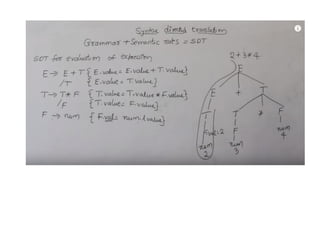 Syntax directed translation
Grammar + Semantic rules = SDT
SDT for evaluation of expression
2+3*4
E → E + T { E.value = E.value + T.value }
/T { E.value = T.value }
T → T * F { T.value = T.value * F.value }
/F { T.value = F.value }
F → num { F.val = num.lvalue }
E
E + T
T T * F
F.val=2 F num
num num 4
2 3